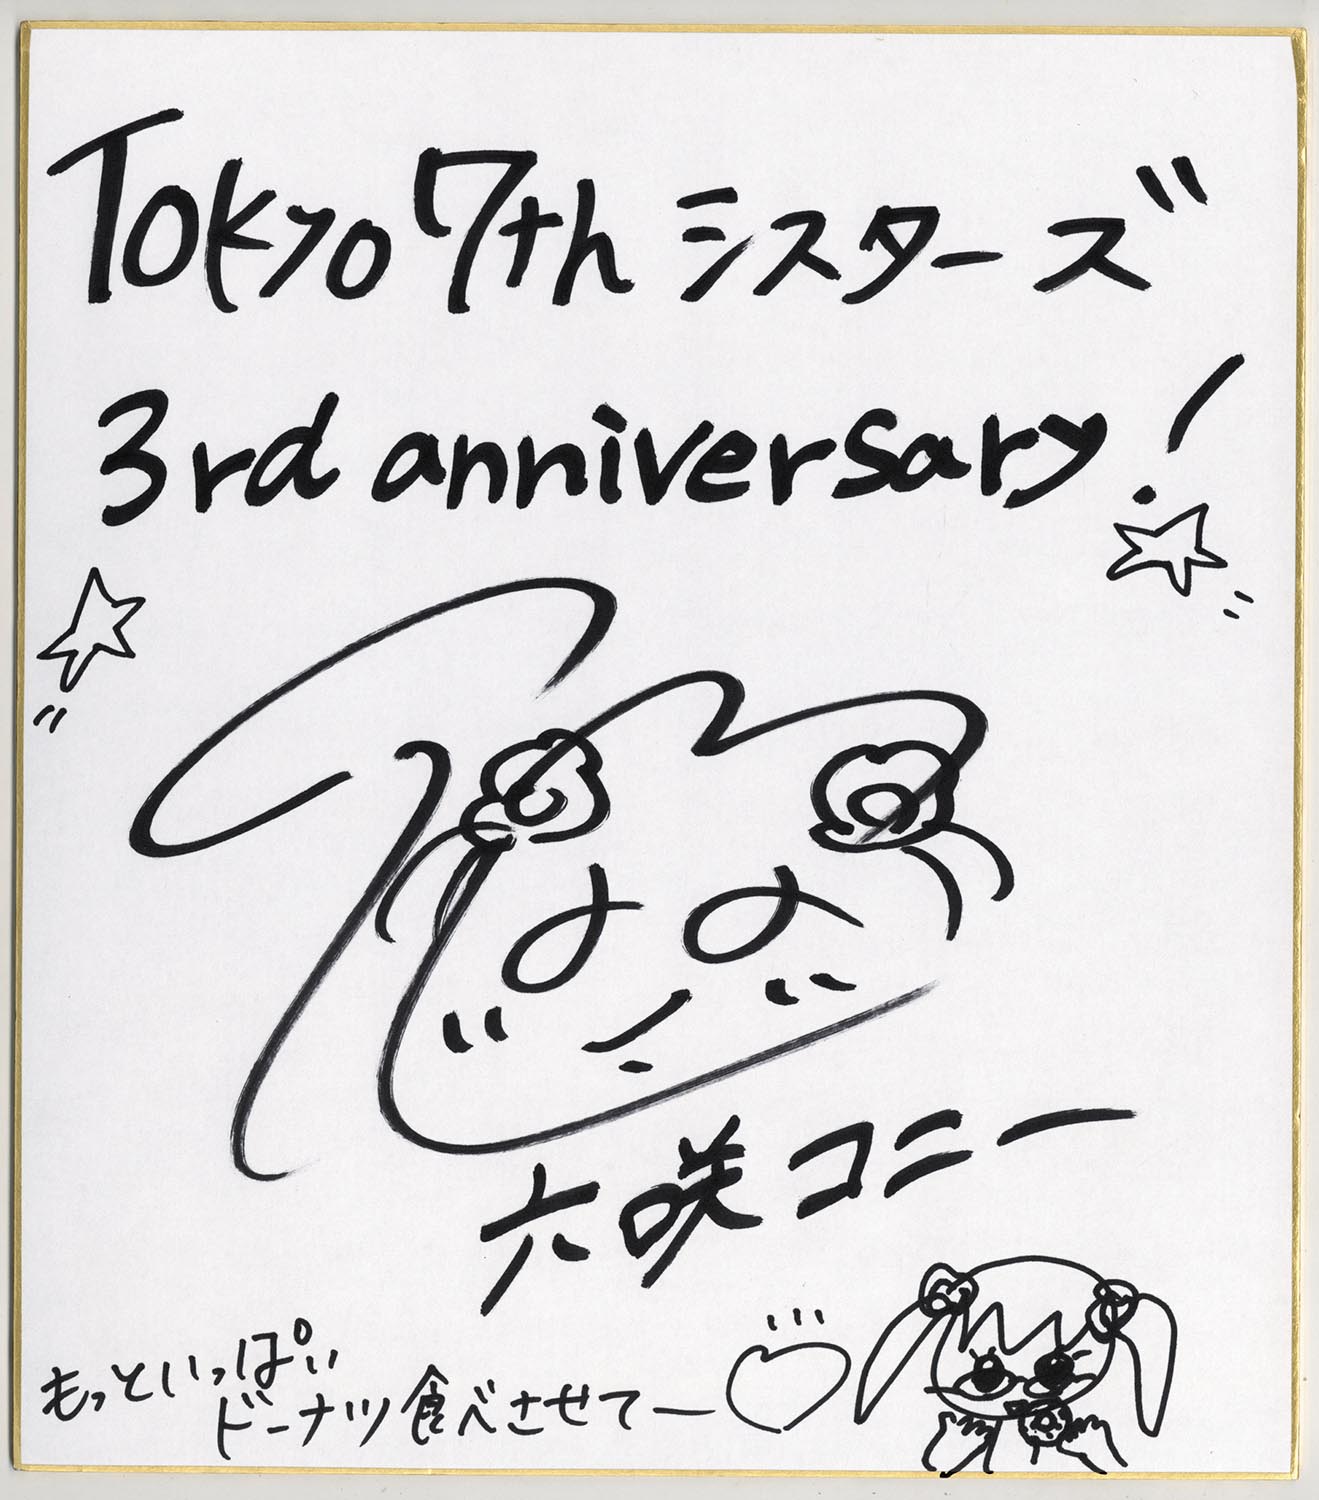 Tokyo 7th シスターズ
3rd anniversary!
六咲コニー
もっといっぱい
ドーナツ食べさせてー